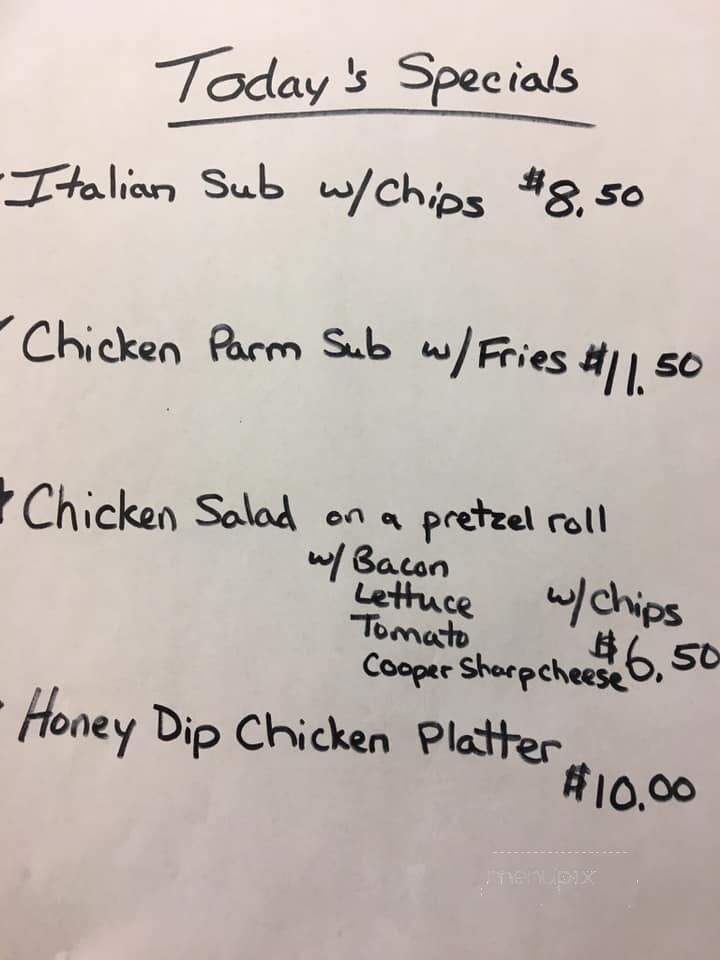 Today's Specials
Italian Sub w/Chips $8.50
Chicken Parm Sub w/Fries $11.50
Chicken Salad on a pretzel roll
w/Bacon
Lettuce w/chips
Tomato $6.50
Cooper Sharp cheese
Honey Dip Chicken Platter
$10.00
menupix